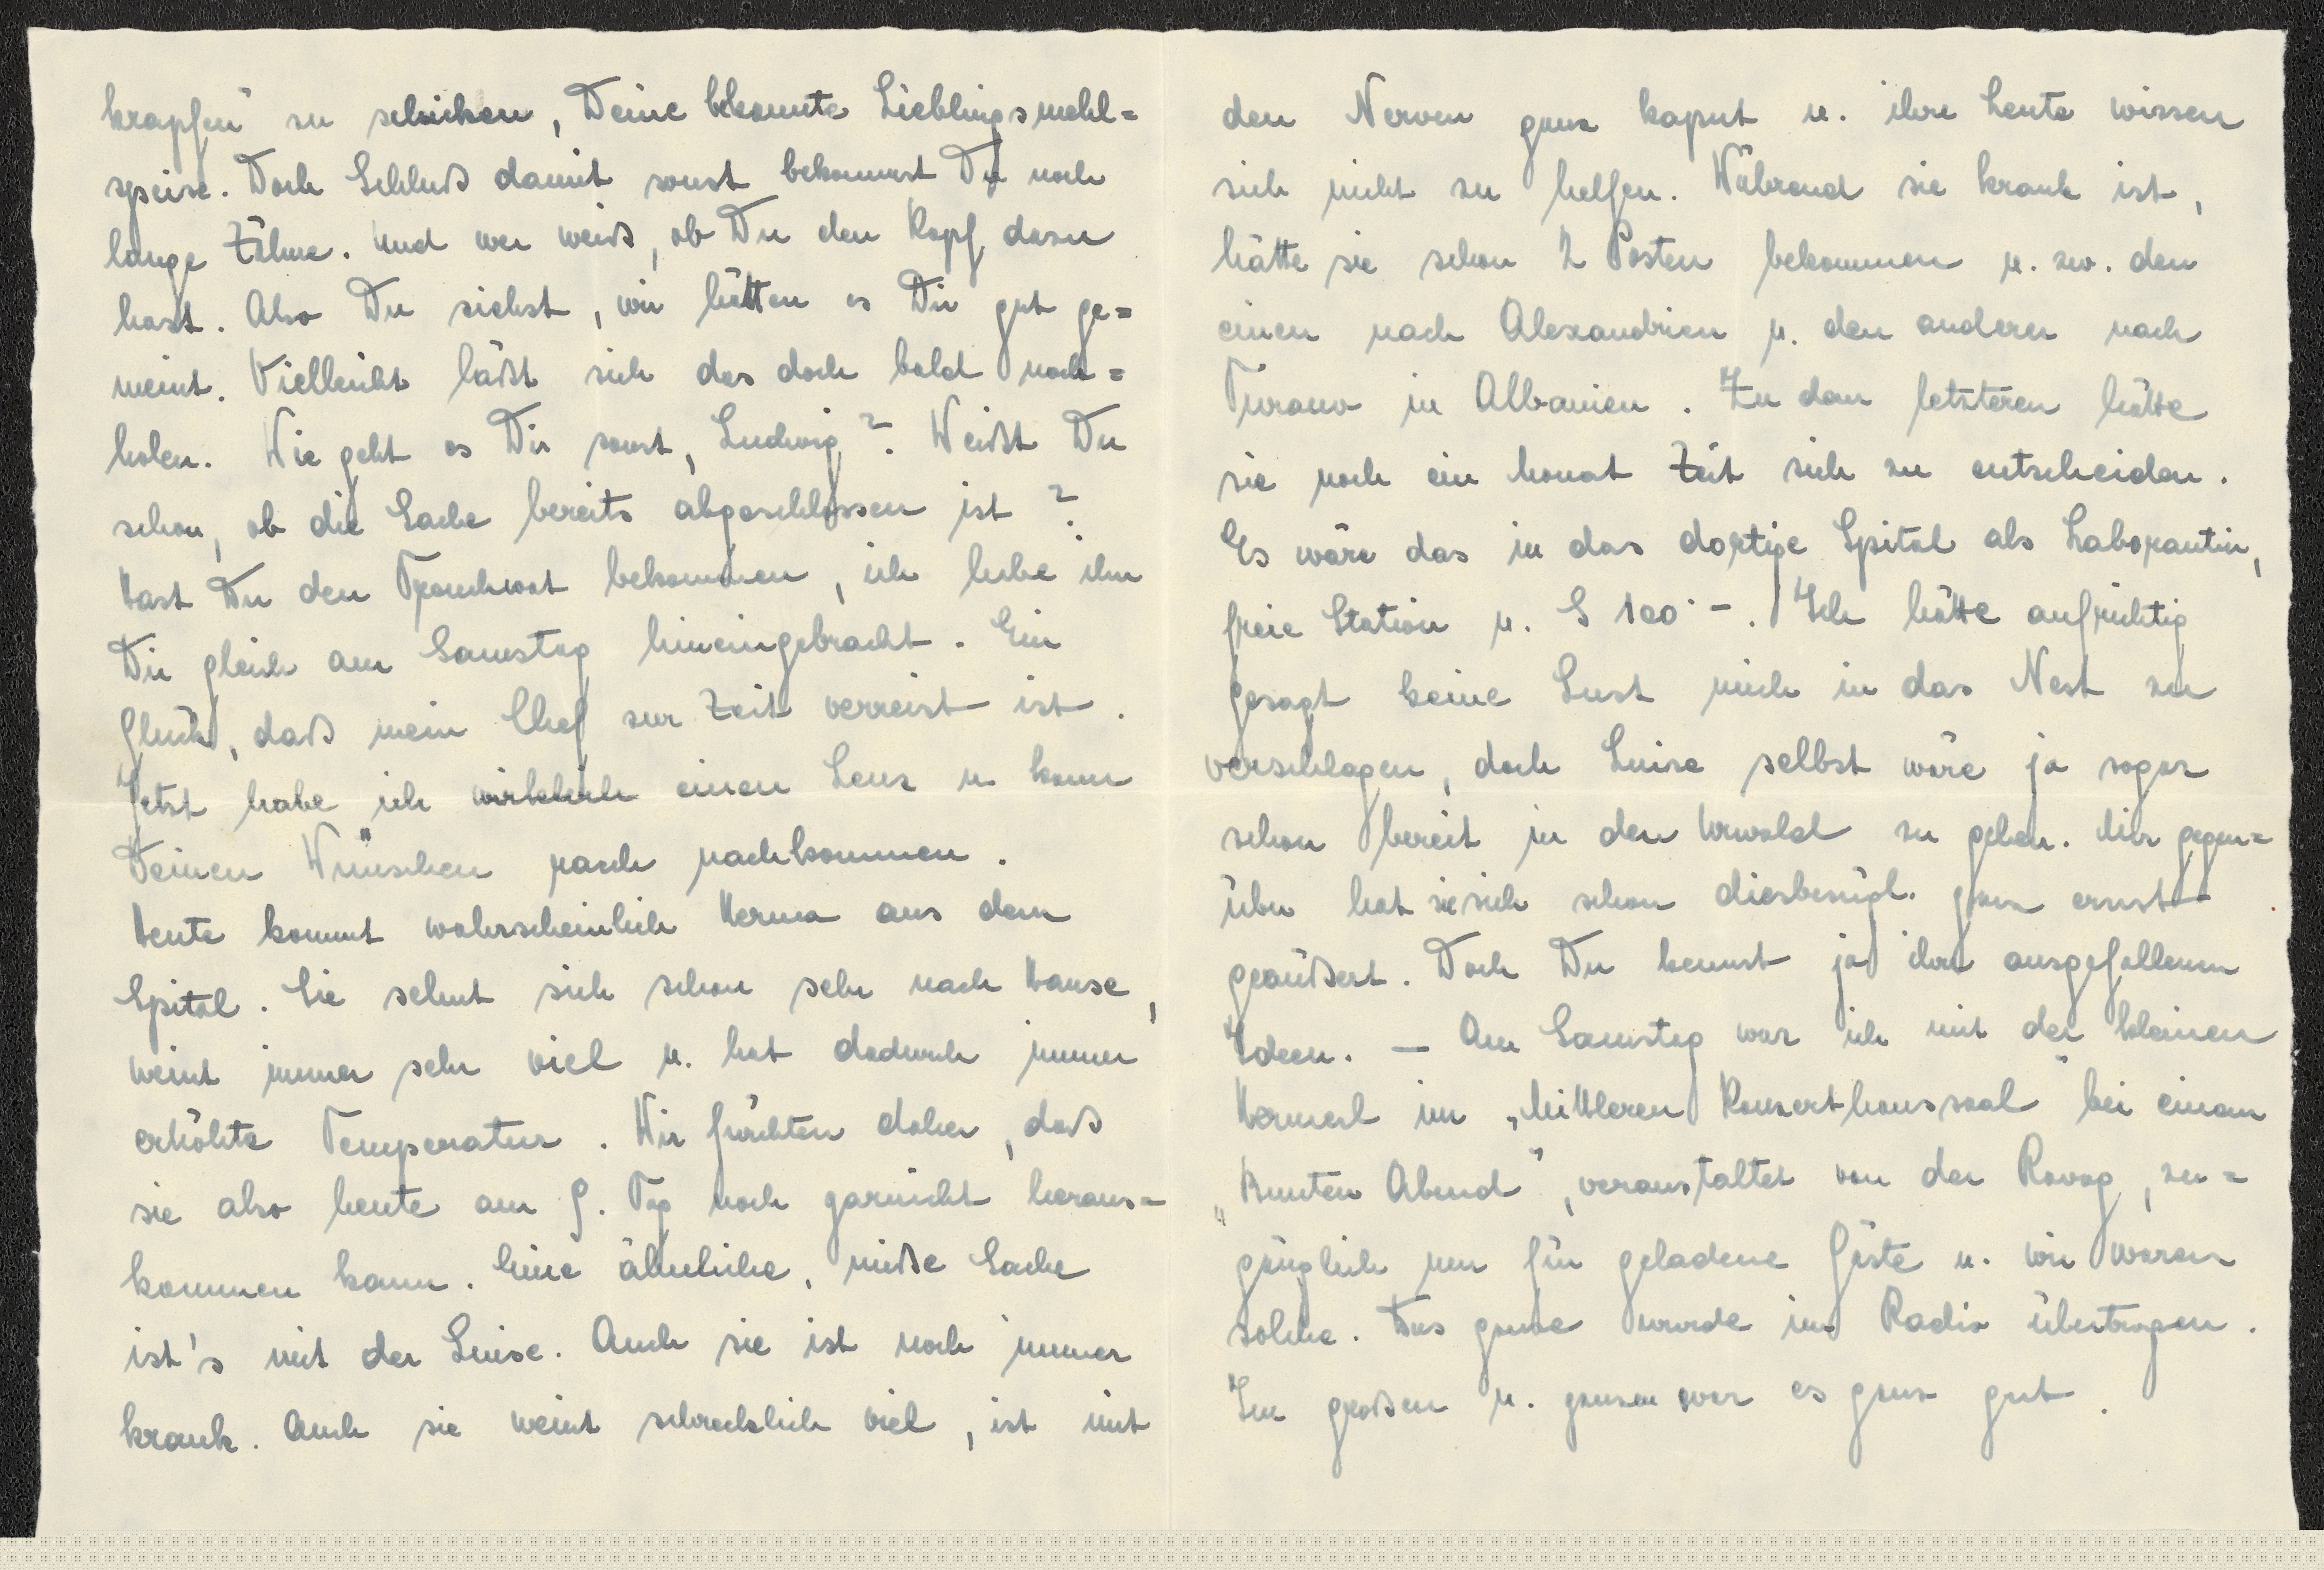 krapfen" zu schicken, Deine bekannte Lieblingsmehl=
speise. Doch Schluß damit sonst bekommst Du noch
lange Zähne. Und wer weiß, ob Du den Kopf dazu
hast. Also Du siehst, wir hätten es Dir gut ge=
meint. Vielleicht läßt sich das doch bald nach=
holen. Wie geht es Dir sonst, Ludwig? Weißt Du
schon, ob die Sache bereits abgeschlossen ist?
Hast Du den bekommen, ich habe ihn
Dir gleich am Samstag hineingebracht. Ein
Glück, daß mein Chef zur Zeit verreist ist.
Jetzt habe ich wirklich einen Lenz u. kann
Deinen Wünschen rasch nachkommen.
Heute kommt wahrscheinlich Herma aus dem
Spital. Sie sehnt sich schon sehr nach Hause,
weint immer sehr viel u. hat dadurch immer
erhöhte Temperatur. Wir fürchten daher, daß
sie also heute am 9. Tag noch garnicht heraus=
kommen kann. Eine ähnliche, mieße Sache
ist's mit der Luise. Auch sie ist noch immer
krank. Auch sie weint schrecklich viel, ist mit
den Nerven ganz kaput u. ihre Leute wissen
sich nicht zu helfen. Während sie krank ist,
hätte sie schon 2 Posten bekommen u. zw. den
einen nach Alexandrien u. den anderen nach
Tirano in Albanien. Zu dem letzteren hätte
sie noch ein Monat Zeit sich zu entscheiden.
Es wäre das in das dortige Spital als Laborantin,
freie Station u. S 100·-. Ich hätte aufrichtig
gesagt keine Lust mich in das Nest zu
verschlagen, doch Luise selbst wäre ja sogar
schon bereit in den Urwald zu gehen. Mir gegen=
über hat sie sich schon diesbezügl. ganz ernst
geäußert. Doch Du kennst ja ihre ausgefallenen
Ideen. — Am Samstag war ich mit der kleinen
Hermerl im „Mittleren Konzerthaussaal" bei einem
„Bunten Abend", veranstaltet von der Ravag, zu=
gänglich nur für geladene Gäste u. wir waren
solche. Das ganze wurde im Radio übertragen.
Im großen u. ganzen war es ganz gut.